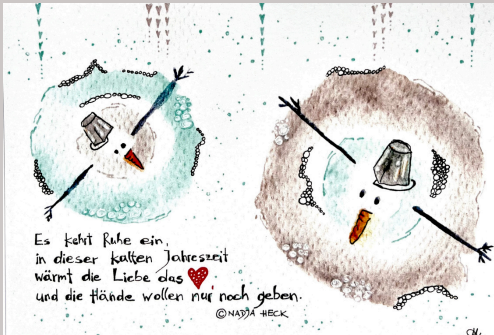 Es kehrt Ruhe ein,
in dieser kalten Jahreszeit
wärmt die Liebe das
und die Hände wollen nur noch geben.
© NADJA HECK